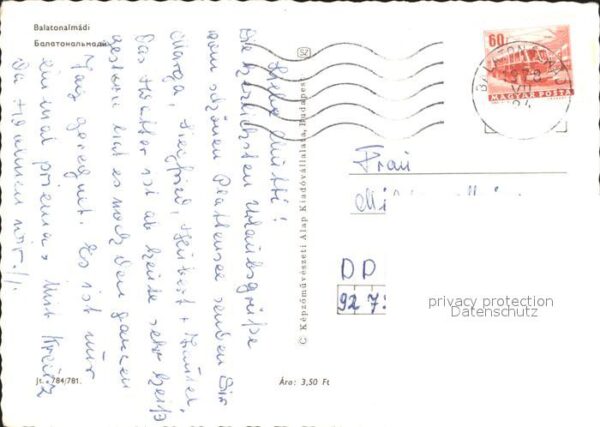 Balatonalmádi
Балатональмади
Liebe Mutti!
Die herzlichsten Urlaubsgrüße
vom schönen Plattensee senden Dir
Marga, Siegfried, Hubert +
Das Wetter ist ab heute sehr heiß
gestern hat es noch den ganzen
Tag geregnet. Es ist nur
ein mal prima, mit Kreuz
Da können wir
Jt. - 784/781.
Ára: 3,50 Ft
C Képzőművészeti Alap Kiadóvállalata, Budapest
60f
MAGYAR POSTA
1978
VII
24
Frau
DD
92 7
privacy protection
Datenschutz